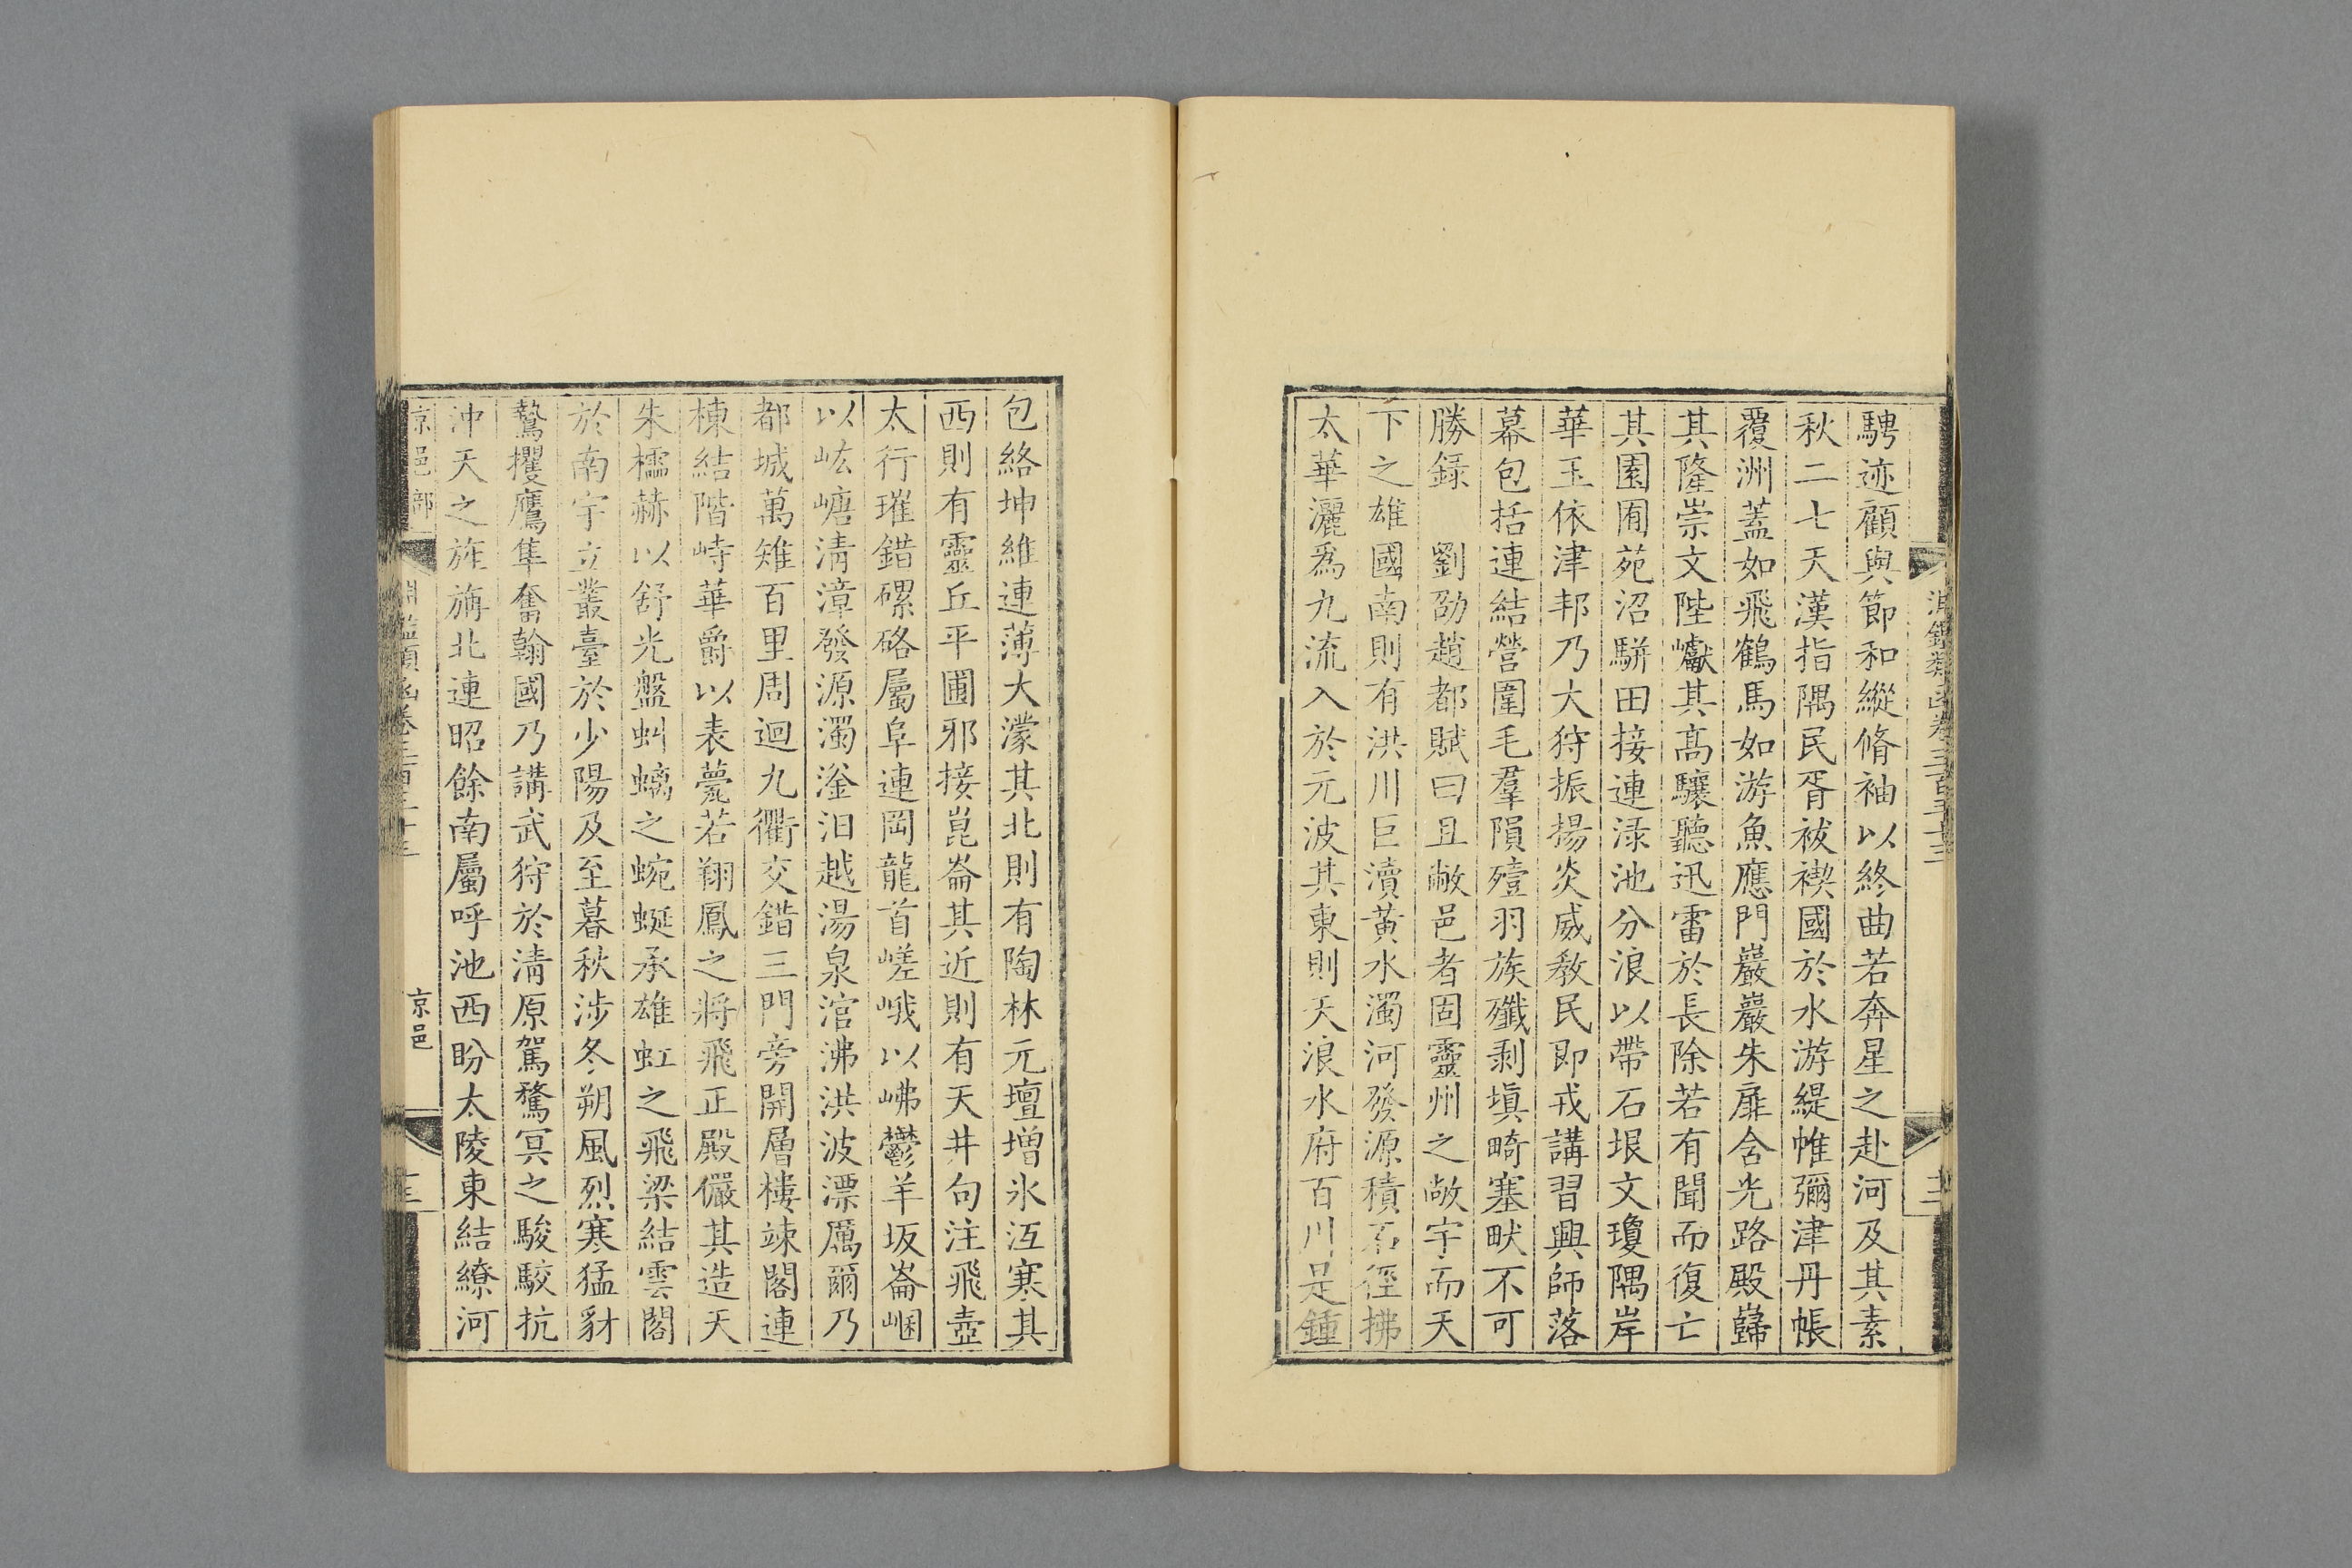 騁迹顧與節和縱脩袖以終曲若奔星之赴河及其素
秋二七天漢指隅民胥祓禊國於水游緹帷彌津丹帳
覆洲蓋如飛鶴馬如游魚應門巖巖朱扉含光路殿巋
其隆崇文陛巘其髙驤聽迅雷於長除若有聞而復亡
其園囿苑沼駢田接連渌池分浪以帶石垠文瓊隅岸
華玉依津邦乃大狩振揚炎威教民即戎講習興師落
幕包括連結營圍毛羣隕殪羽族殲剥塡畸塞畎不可
勝錄　劉劭趙都賦曰且敝邑者固靈州之敞宇而天
下之雄國南則有洪川巨瀆黃水濁河發源積石徑拂
太華灑爲九流入於元波其東則天浪水府百川是鍾
包絡坤維連薄大濛其北則有陶林元壇增氷冱寒其
西則有靈丘平圃邪接崑崙其近則有天井句注飛壺
太行璀錯磥硌屬阜連岡龍首嵯峨以岪鬱羊坂崙崓
以峵嵣淸漳發源濁滏汩越湯泉涫沸洪波漂厲爾乃
都城萬雉百里周迴九衢交錯三門旁開層樓竦閣連
棟結階峙華爵以表甍若翔鳳之將飛正殿儼其造天
朱櫺赫以舒光盤虯螭之蜿蜒承雄虹之飛梁結雲閣
於南宇立叢臺於少陽及至暮秋涉冬朔風烈寒猛豺
鷙攫鷹隼奮翰國乃講武狩於淸原駕騖冥之駿駮抗
沖天之旌旃北連昭餘南屬呼池西盼太陵東結繚河
京邑部
淵鑑類函卷三百三十三
京邑